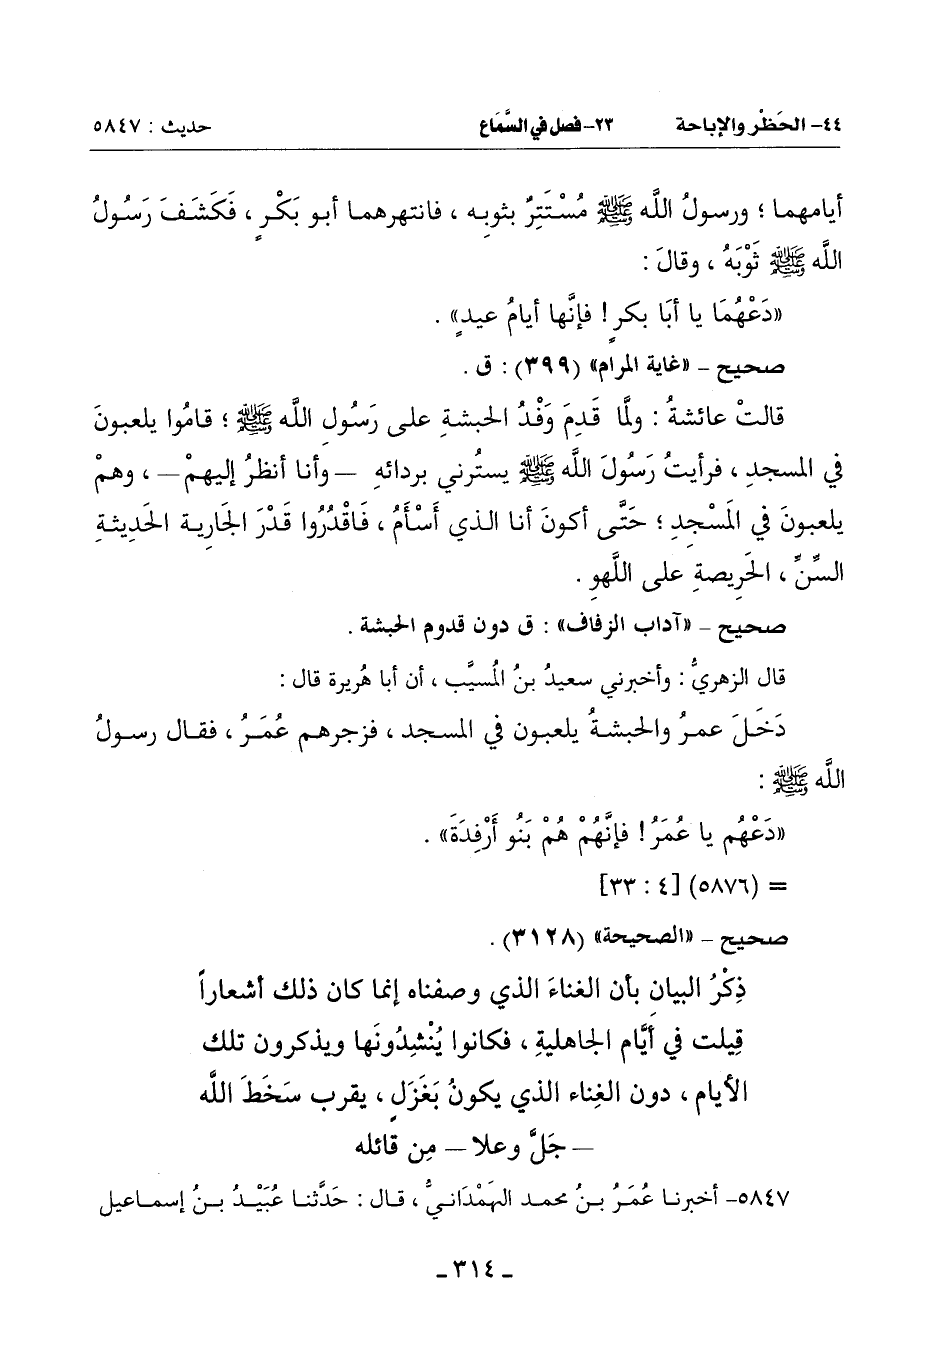 ٤٤- الحَظْر والإباحة ٢٣- فصل في السَّمَاع حديث : ٥٨٤٧
أيامهما ؛ ورسولُ اللَّه ﷺ مُسْتَتِرٌ بثوبِه ، فانتهرهما أبو بَكْرٍ ، فَكَشَفَ رَسُولُ
اللَّه ﷺ ثَوْبَهُ ، وقالَ :
«دَعْهُمَا يا أَبَا بكرٍ ! فإنَّها أيامُ عيدٍ» .
صحيح – «غاية المرام» (٣٩٩) : ق .
قالتْ عائشةُ : ولَّا قَدِمَ وَفْدُ الحبشةِ على رَسُولِ اللَّه ﷺ ؛ قامُوا يلعبونَ
في المسجدِ ، فرأيتُ رَسُولَ اللَّه ﷺ يستُرني بردائه –وأنا أنظرُ إليهمْ– ، وهمْ
يلعبونَ في المَسْجِدِ ؛ حَتَّى أكونَ أنا الذي أَسْأَمُ ، فَاقْدُرُوا قَدْرَ الجَارِيةِ الحَدِيثةِ
السِّنِّ ، الحَرِيصةِ على اللَّهوِ .
صحيح – «آداب الزفاف» : ق دون قدوم الحبشة .
قال الزهريُّ : وأخبرني سعيدُ بنُ المُسيَّب ، أن أبا هُريرة قال :
دَخَلَ عمرُ والحَبشةُ يلعبون في المسجد ، فزجرهم عُمَرُ ، فقال رسولُ
اللَّه ﷺ :
«دَعْهُم يا عُمَرُ ! فإنَّهُمْ هُمْ بَنُو أَرْفِدَةَ» .
= (٥٨٧٦) [٤ : ٣٣]
صحيح – «الصحيحة» (٣١٢٨) .
ذِكْرُ البيانِ بأن الغناءَ الذي وصفناه إنما كان ذلك أشعاراً
قِيلت في أيَّام الجاهليةِ ، فكانوا يُنْشِدُونَها ويذكرون تلك
الأيام ، دون الغِناء الذي يكونُ بَغَزَلٍ ، يقرب سَخَطَ اللَّه
–جَلَّ وعلا– مِن قائله
٥٨٤٧- أخبرنا عُمَرُ بنُ محمد الهَمْدَانيُّ ، قال : حَدَّثنا عُبَيْدُ بنُ إسماعيل
ـ ٣١٤ ـ